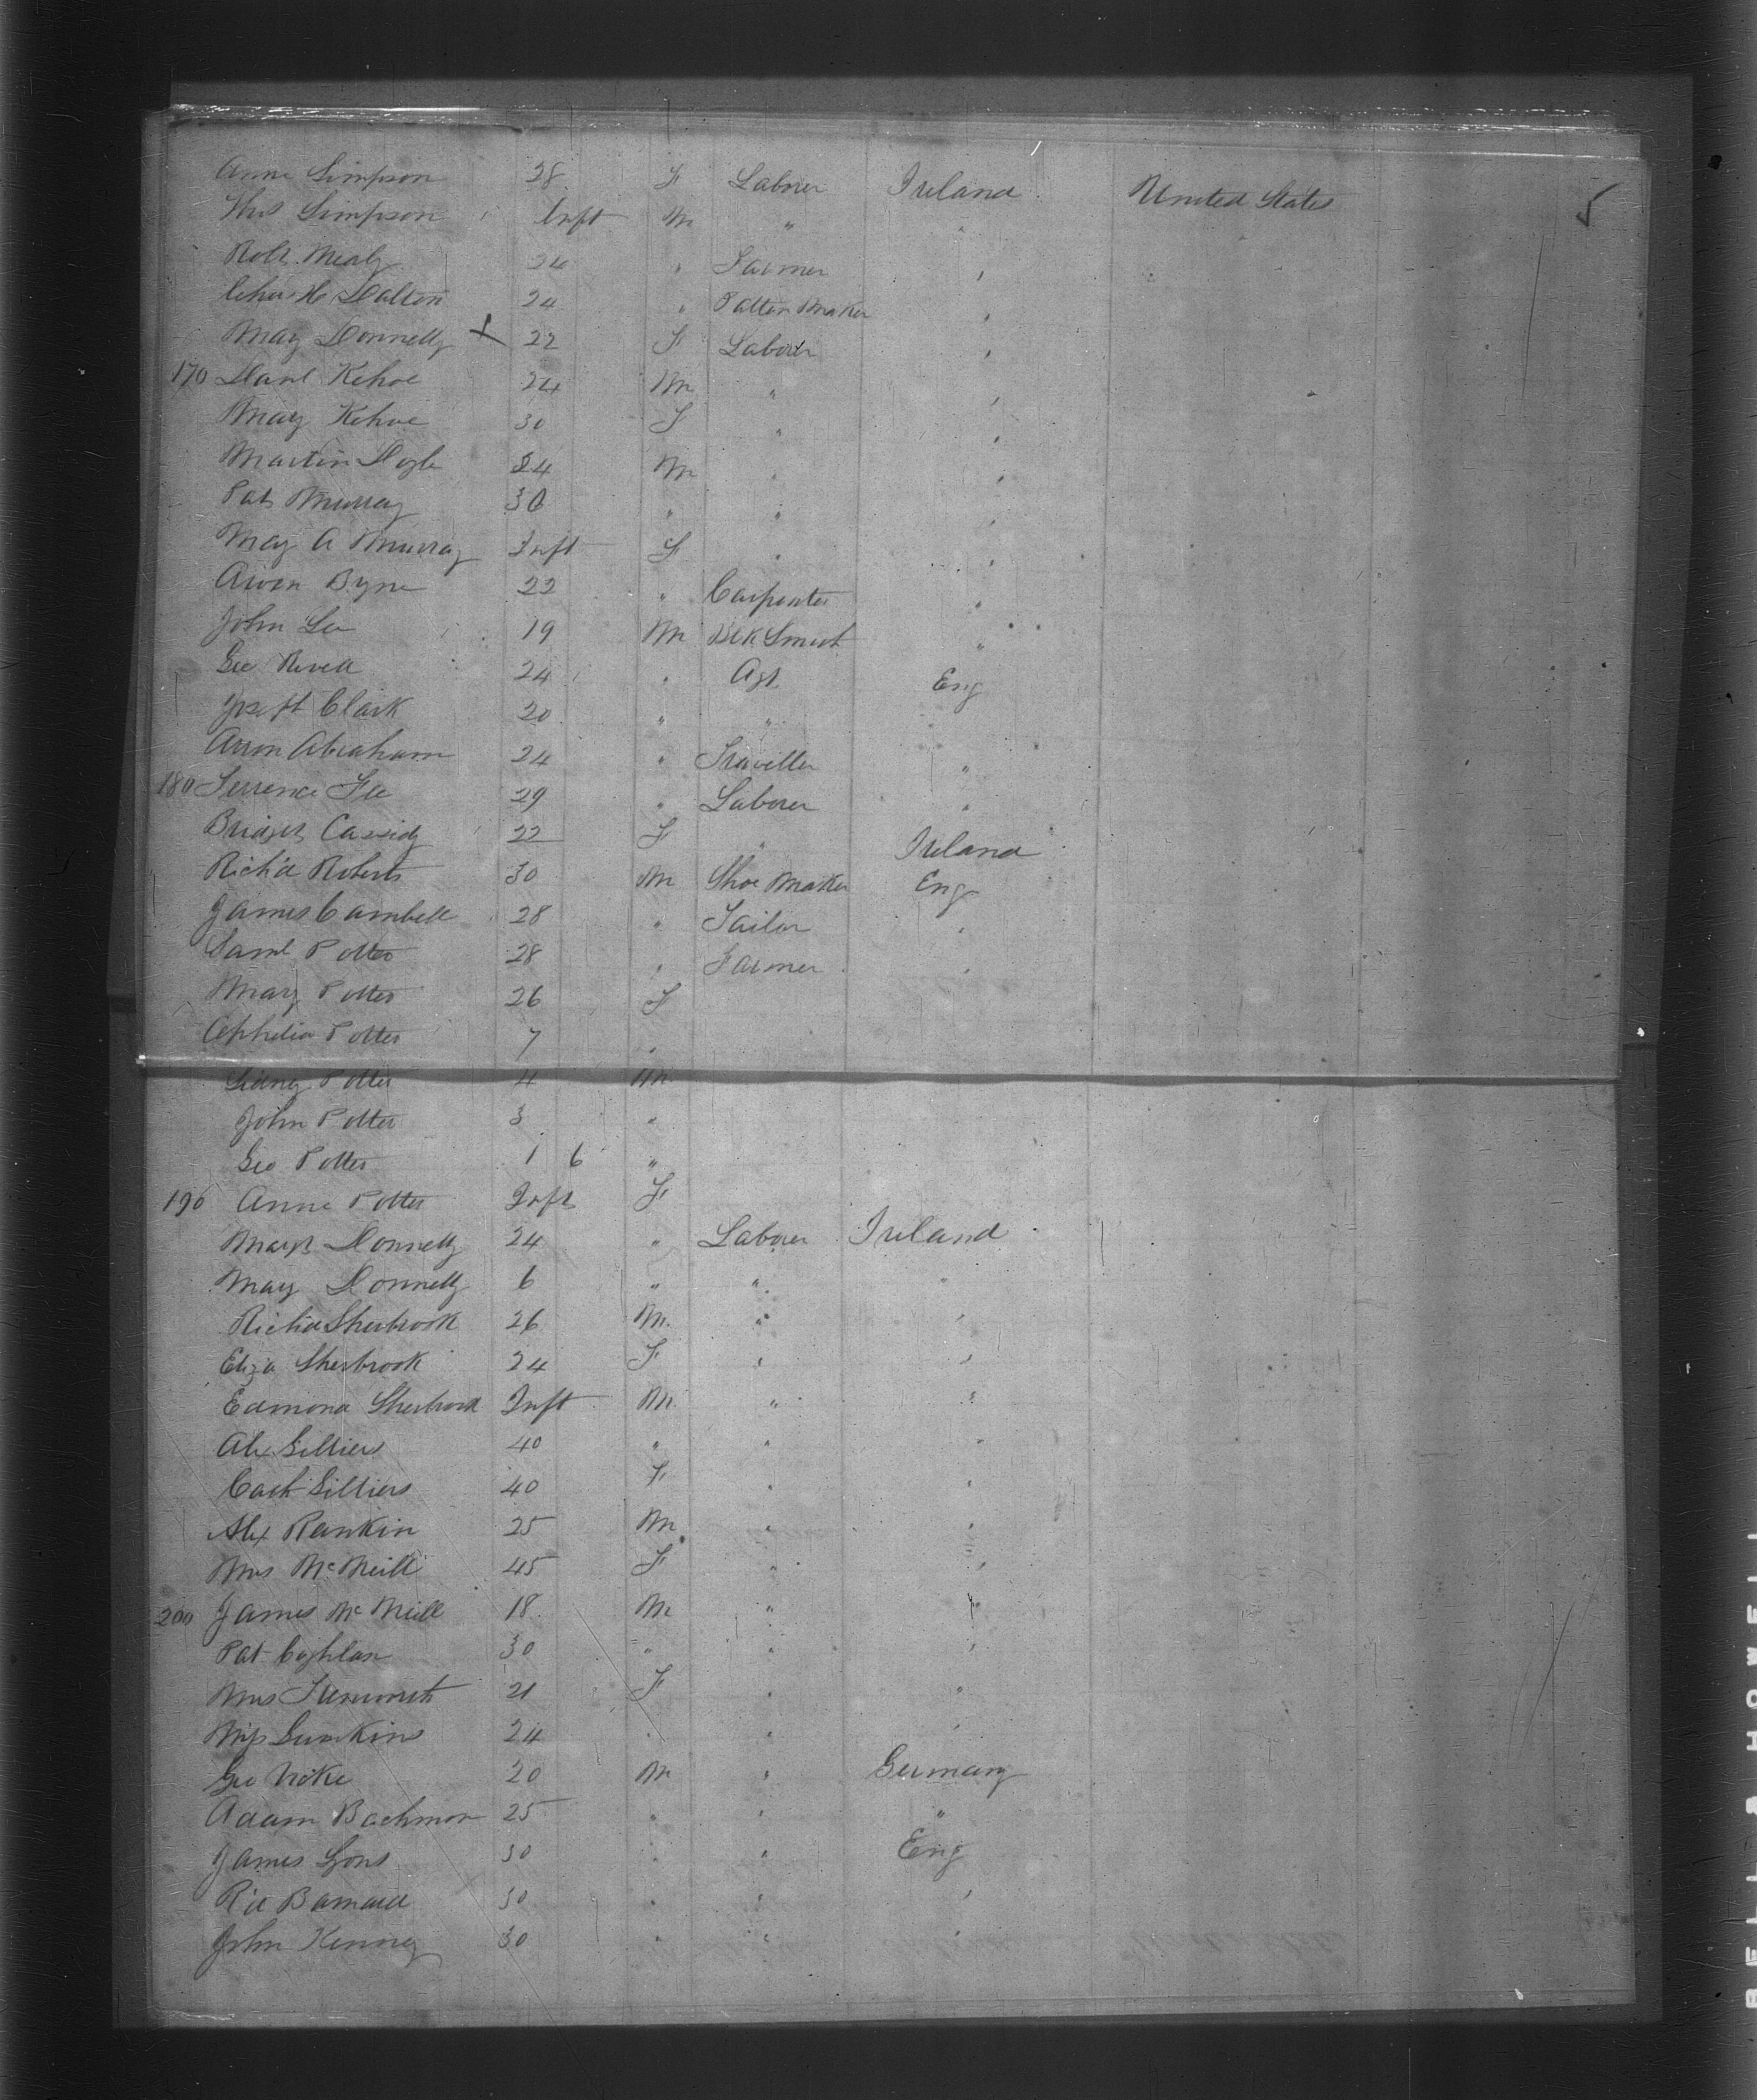 Anne Simpson 28 F Laborer Ireland United States
Thos Simpson Inft M " "
Robt Mealy 24 " Farmer "
Chas H Dalton 24 " Patten Maker "
Mary Donnelly X 22 F Laborer "
170 Danl Kehoe 24 M " "
Mary Kehoe 30 F " "
Martin Doyle 24 M " "
Pat Murray 30 " " "
Mary A Murray Inft F " "
Owen Byrne 22 " Carpenter "
John Lee 19 M Blk Smith "
Geo Revell 24 " Agt. Eng
Joseph Clark 20 " " "
Aaron Abraham 24 " Traveller "
180 Terrence Fee 29 " Laborer "
Bridget Cassidy 22 F " Ireland
Rich'd Roberts 30 M Shoe Maker Eng
James Cambell 28 " Tailor "
Saml Potter 28 " Farmer "
Mary Potter 26 F
Ophelia Potter 7 "
Sidney Potter 4 M
John Potter 3 "
Geo Potter 1 6 "
190 Anne Potter Inft F
Margt Donnelly 24 " Laborer Ireland
Mary Donnelly 6 " " "
Richd Sherbrook 26 M. " "
Eliza Sherbrook 24 F " "
Edmond Sherbrook Inft M " "
Alex Gilliers 40 " " "
Cath Gilliers 40 F " "
Alex Rankin 25 M " "
Mrs McNeill 45 F " "
200 James McNeill 18 M " "
Pat Coghlan 30 " " "
Mrs 21 F " "
Miss 24 " " "
Geo Noke 20 M " Germany
Adam Bachmon 25 " " "
James Lyons 30 " " Eng
Rd Barnard 30 " " "
John Kenney 30 " " "